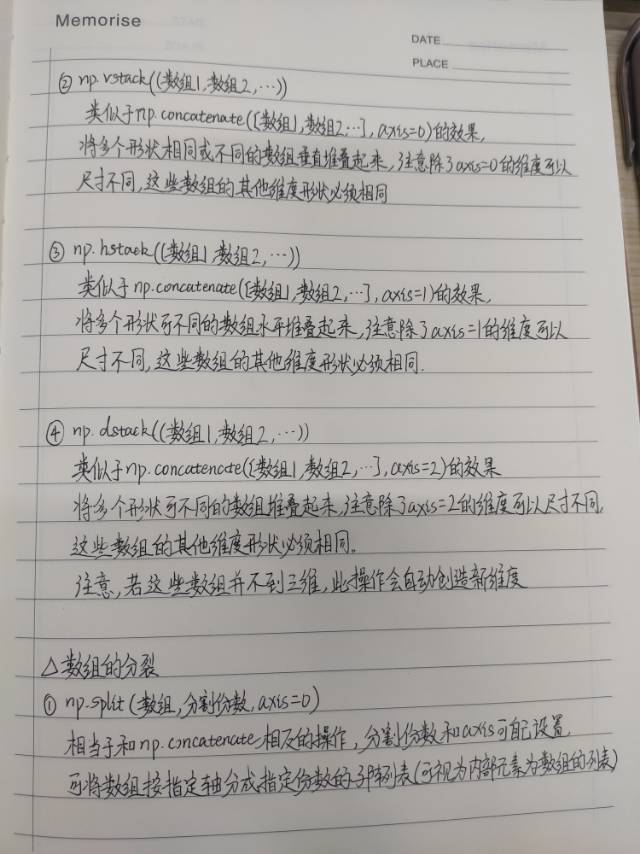 Memorise
DATE
PLACE
② np.vstack((数组1,数组2,…))
类似于np.concatenate([数组1,数组2…],axis=0)的效果,
将多个形状相同或不同的数组垂直堆叠起来,注意除了axis=0的维度可以
尺寸不同,这些数组的其他维度形状必须相同
③ np.hstack((数组1,数组2,…))
类似于np.concatenate([数组1,数组2,…],axis=1)的效果,
将多个形状可不同的数组水平堆叠起来,注意除了axis=1的维度可以
尺寸不同,这些数组的其他维度形状必须相同.
④ np.dstack((数组1,数组2,…))
类似于np.concatencate([数组1,数组2,…],axis=2)的效果
将多个形状可不同的数组堆叠起来,注意除了axis=2的维度可以尺寸不同,
这些数组的其他维度形状必须相同。
注意,若这些数组并不到三维,此操作会自动创造新维度
△数组的分裂
① np.split(数组,分割份数,axis=0)
相当于和np.concatenate相反的操作,分割份数和axis可自己设置
可将数组按指定轴分成指定份数的子阵列表(可视为内部元素为数组的列表)